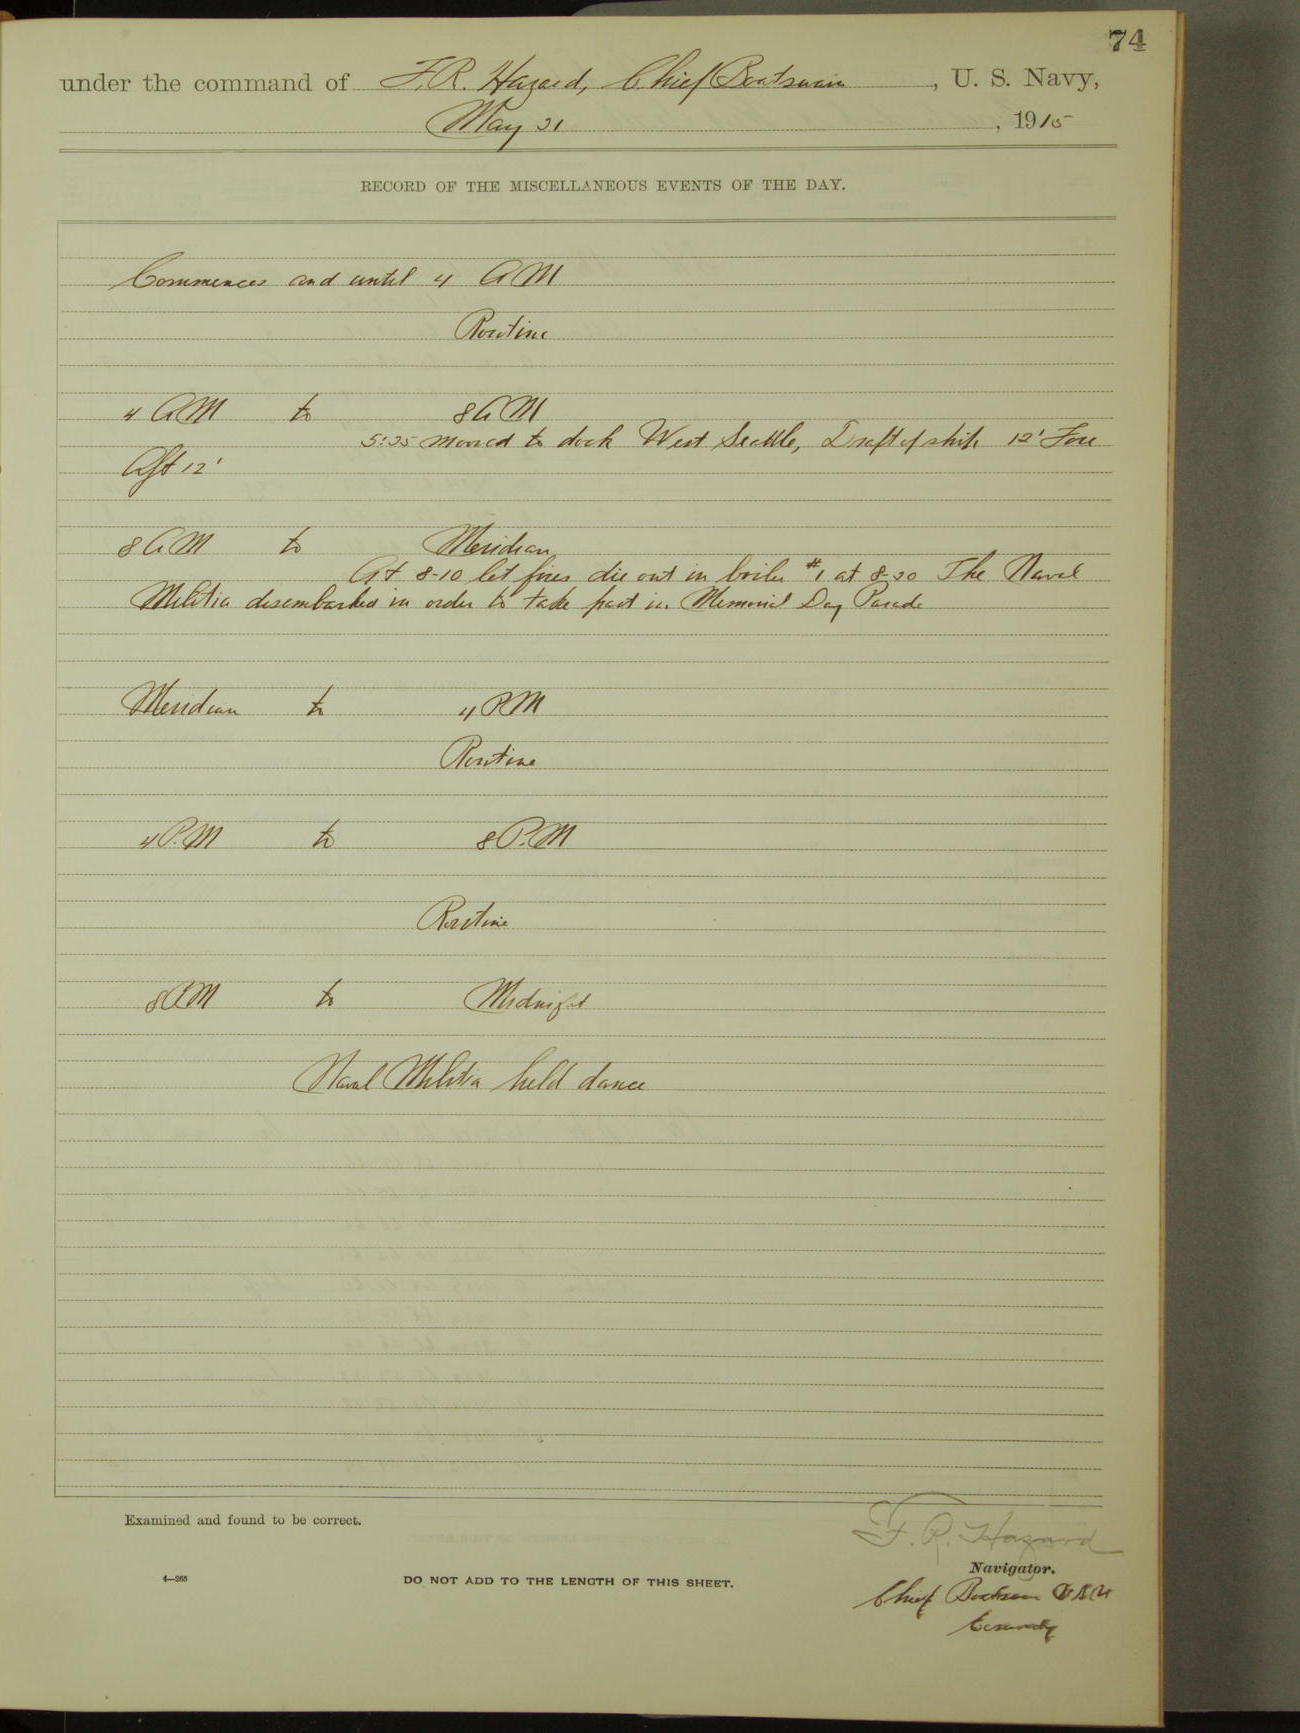 74
under the command of F. R. Hazard, Chief Boatswain, U. S. Navy,
May 31, 1915
RECORD OF THE MISCELLANEOUS EVENTS OF THE DAY.
Commences and until 4 AM
Routine
4 AM to 8 AM
5:35 moored to dock West Seattle, Draft of ship 12' Fore
Aft 12'
8 AM to Meridian
At 8-10 let fires die out in boiler #1 at 8-30 The Naval
Militia disembarked in order to take part in Memorial Day Parade
Meridian to 4 PM
Routine
4 P.M to 8 P.M
Routine
8 PM to Midnight
Naval Militia held dance
Examined and found to be correct.
F. R. Hazard
Navigator.
Chief Boatswain U.S.N
4—265
DO NOT ADD TO THE LENGTH OF THIS SHEET.